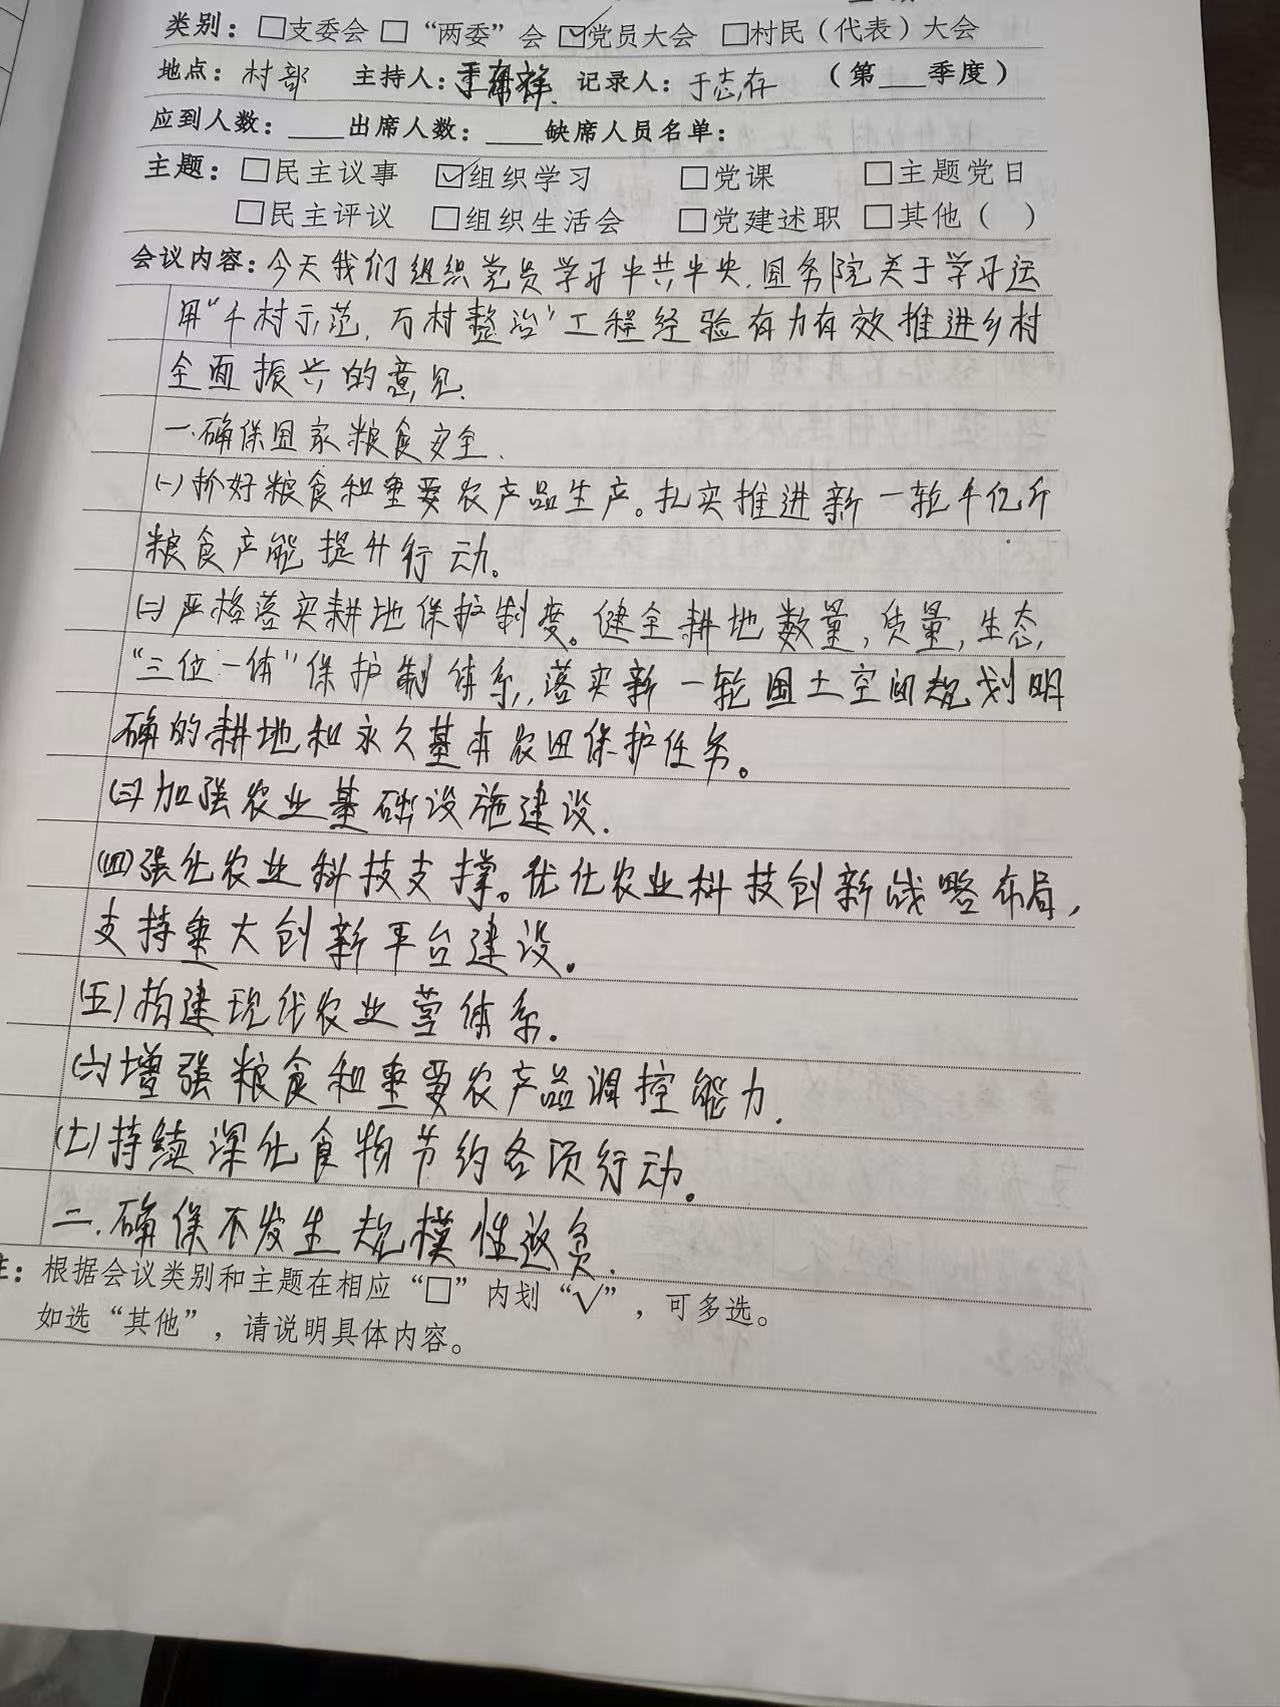 类别：☐支委会 ☐“两委”会 ☑党员大会 ☐村民（代表）大会
地点：村部 主持人： 记录人：于志存 （第___季度）
应到人数：____出席人数：____缺席人员名单：
主题：☐民主议事 ☑组织学习 ☐党课 ☐主题党日
☐民主评议 ☐组织生活会 ☐党建述职 ☐其他（ ）
会议内容：今天我们组织党员学习中共中央.国务院关于学习运
用“千村示范,万村整治”工程经验有力有效推进乡村
全面振兴的意见.
一.确保国家粮食安全.
(一)抓好粮食和重要农产品生产。扎实推进新一轮千亿斤
粮食产能提升行动。
(二)严格落实耕地保护制度。健全耕地数量,质量,生态,
“三位一体”保护制体系,落实新一轮国土空间规划明
确的耕地和永久基本农田保护任务。
(三)加强农业基础设施建设.
(四)强化农业科技支撑。优化农业科技创新战略布局,
支持重大创新平台建设。
(五)构建现代农业营体系。
(六)增强粮食和重要农产品调控能力.
(七)持续深化食物节约各项行动。
二.确保不发生规模性返贫.
注：根据会议类别和主题在相应“☐”内划“√”，可多选。
如选“其他”，请说明具体内容。